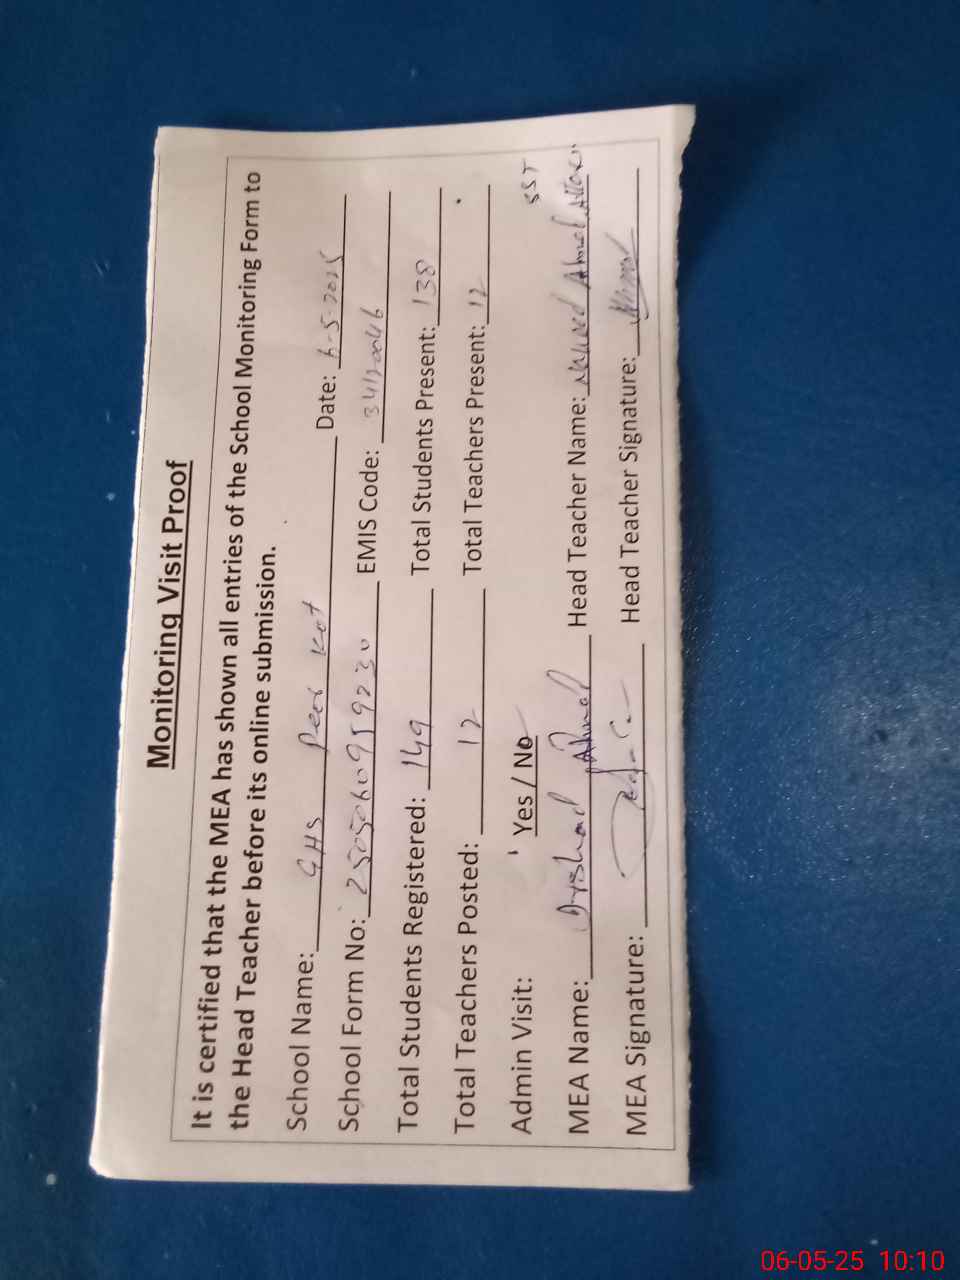 Monitoring Visit Proof
It is certified that the MEA has shown all entries of the School Monitoring Form to
the Head Teacher before its online submission.
School Name: GHS Peer Kot Date: 6-5-2025
School Form No: 2505060959230 EMIS Code: 34120046
Total Students Registered: 149 Total Students Present: 138
Total Teachers Posted: 12 Total Teachers Present: 12
Admin Visit: Yes / No SST
MEA Name: Arshad Ahmad Head Teacher Name: Naveed Ahmad
MEA Signature: Head Teacher Signature:
06-05-25 10:10